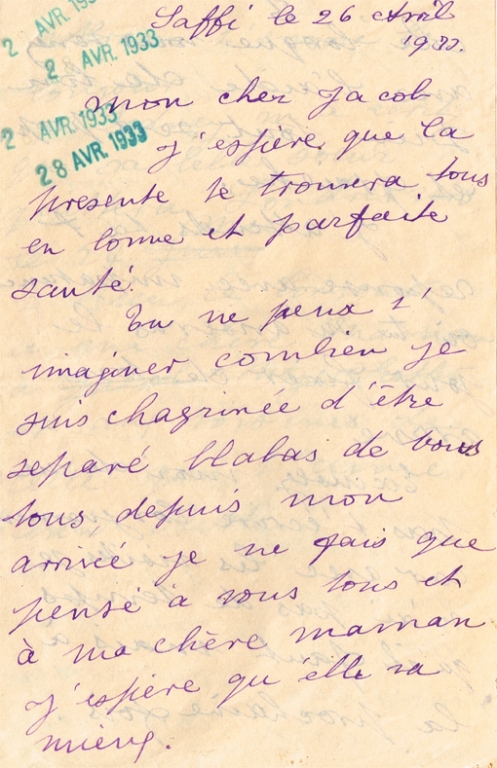 Saffi le 26 Avril
1933.
2 AVR. 1933
2 AVR. 1933
2 AVR. 1933
28 AVR. 1933
Mon cher Jacob
J'espère que la
presente te trouvera tous
en bonne et parfaite
santé.
Tu ne peux t'
imaginer combien je
suis chagrinée d'être
separé de vous
tous depuis mon
arrivée je ne fais que
pensé à vous tous et
à ma chère maman
j'espère qu'elle va
mieux.